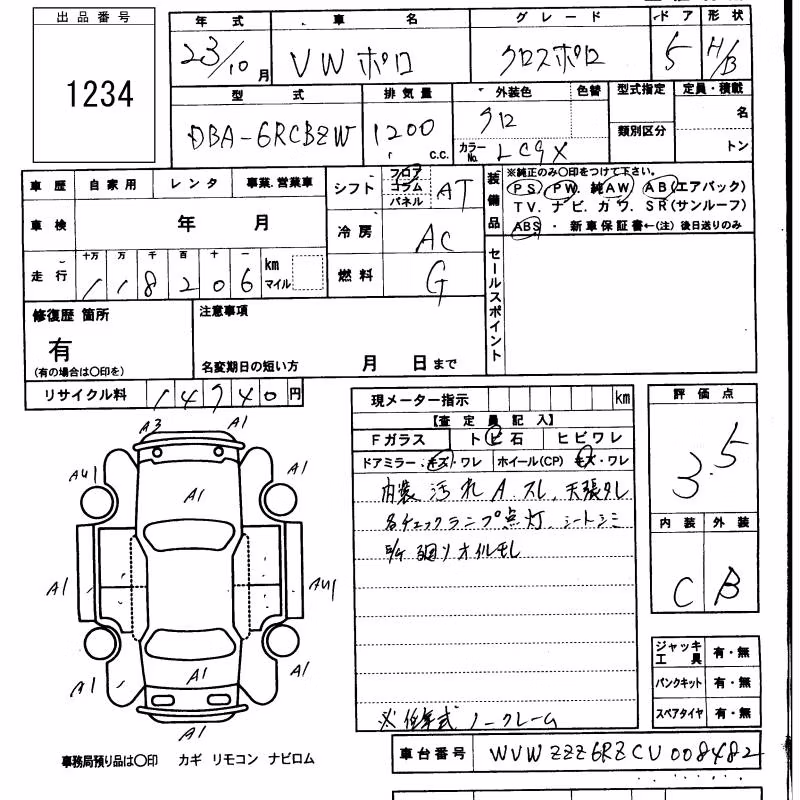 出品番号
1234
年式 車名 グレード ドア 形状
23/10月 VW ポロ クロスポロ 5 H/B
型式 排気量 外装色 色替 型式指定 定員・積載
DBA-6RCBZW 1200 c.c. クロ 名
類別区分 トン
カラーNo. LC9X
車歴 自家用 レンタ 事業.営業車
車検 年 月
走行 十万 万 千 百 十 一 km マイル
118206
シフト フロア コラム パネル AT
冷房 AC
燃料 G
装備品
※純正のみ○印をつけて下さい。
PS. PW. 純AW AB(エアバック)
TV. ナビ. カワ. SR(サンルーフ)
ABS ・ 新車保証書←(注) 後日送りのみ
セールスポイント
修復歴 箇所
有
(有の場合は○印を)
注意事項
名変期日の短い方 月 日まで
リサイクル料 14740円
現メーター指示 km
【査定員記入】
Fガラス トビ石 ヒビワレ
ドアミラー・キズ・ワレ ホイール(CP) キズ・ワレ
内装 汚れ A スレ 天張タレ
各チェックランプ点灯、シートシミ
オイルモレ
※低年式 ノークレーム
評価点
3.5
内装 外装
C B
ジャッキ 工具 有・無
パンクキット 有・無
スペアタイヤ 有・無
A3 A1
AU1 A1 A1
A1 AU1
A1 A1 A1
A1
事務局預り品は○印 カギ リモコン ナビロム
車台番号 WVWZZZ6RZCU008482